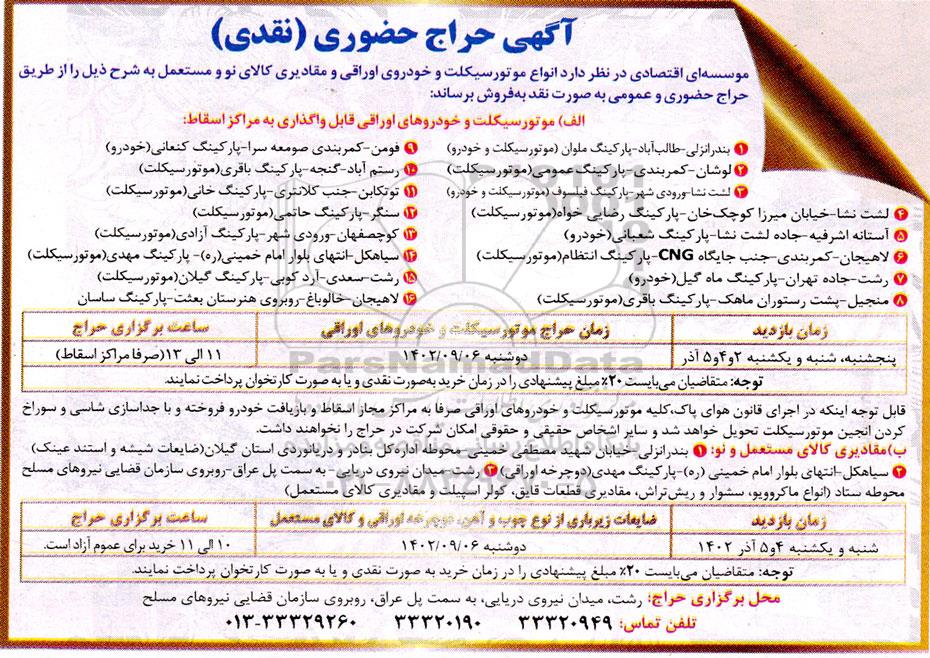 آگهی حراج حضوری (نقدی)
موسسه‌ای اقتصادی در نظر دارد انواع موتورسیکلت و خودروی اوراقی و مقادیری کالای نو و مستعمل به شرح ذیل را از طریق
حراج حضوری و عمومی به صورت نقد به‌فروش برساند:
الف) موتورسیکلت و خودروهای اوراقی قابل واگذاری به مراکز اسقاط:
۱ بندرانزلی-طالب‌آباد-پارکینگ ملوان (موتورسیکلت و خودرو)
۲ لوشان-کمربندی-پارکینگ عمومی(موتورسیکلت)
۳ لشت نشا-ورودی شهر-پارکینگ فیلسوف (موتورسیکلت و خودرو)
۴ لشت نشا-خیابان میرزا کوچک‌خان-پارکینگ رضایی خواه(موتورسیکلت)
۵ آستانه اشرفیه-جاده لشت نشا-پارکینگ شعبانی(خودرو)
۶ لاهیجان-کمربندی-جنب جایگاه CNG-پارکینگ انتظام(موتورسیکلت)
۷ رشت-جاده تهران-پارکینگ ماه گیل(خودرو)
۸ منجیل-پشت رستوران ماهک-پارکینگ باقری(موتورسیکلت)
۹ فومن-کمربندی صومعه سرا-پارکینگ کنعانی(خودرو)
۱۰ رستم آباد-گنجه-پارکینگ باقری(موتورسیکلت)
۱۱ توتکابن-جنب کلانتری-پارکینگ خانی(موتورسیکلت)
۱۲ سنگر-پارکینگ حاتمی(موتورسیکلت)
۱۳ کوچصفهان-ورودی شهر-پارکینگ آزادی(موتورسیکلت)
۱۴ سیاهکل-انتهای بلوار امام خمینی(ره)- پارکینگ مهدی(موتورسیکلت)
۱۵ رشت-سعدی-آرد کوبی-پارکینگ گیلان(موتورسیکلت)
۱۶ لاهیجان-خالوباغ-روبروی هنرستان بعثت-پارکینگ ساسان
زمان بازدید زمان حراج موتورسیکلت و خودروهای اوراقی ساعت برگزاری حراج
پنجشنبه، شنبه و یکشنبه ۲و۴و۵ آذر دوشنبه ۱۴۰۲/۰۹/۰۶ ۱۱ الی ۱۳(صرفا مراکز اسقاط)
توجه: متقاضیان می‌بایست ۲۰٪ مبلغ پیشنهادی را در زمان خرید به‌صورت نقدی و یا به صورت کارتخوان پرداخت نمایند.
قابل توجه اینکه در اجرای قانون هوای پاک،کلیه موتورسیکلت و خودروهای اوراقی صرفا به مراکز مجاز اسقاط و بازیافت خودرو فروخته و با جداسازی شاسی و سوراخ
کردن انجین موتورسیکلت تحویل خواهد شد و سایر اشخاص حقیقی و حقوقی امکان شرکت در حراج را نخواهند داشت.
ب)مقادیری کالای مستعمل و نو: ۱ بندرانزلی-خیابان شهید مصطفی خمینی-محوطه اداره‌کل بنادر و دریانوردی استان گیلان(ضایعات شیشه و استند عینک)
۲ سیاهکل-انتهای بلوار امام خمینی (ره)-پارکینگ مهدی(دوچرخه اوراقی) ۳ رشت-میدان نیروی دریایی- به سمت پل عراق-روبروی سازمان قضایی نیروهای مسلح
محوطه ستاد (انواع ماکروویو، سشوار و ریش‌تراش، مقادیری قطعات قایق، کولر اسپیلت و مقادیری کالای مستعمل)
زمان بازدید ضایعات زیرباری از نوع چوب و آهن، دوچرخه اوراقی و کالای مستعمل ساعت برگزاری حراج
شنبه و یکشنبه ۴و۵ آذر ۱۴۰۲ دوشنبه ۱۴۰۲/۰۹/۰۶ ۱۰ الی ۱۱ خرید برای عموم آزاد است.
توجه: متقاضیان می‌بایست ۲۰٪ مبلغ پیشنهادی را در زمان خرید به صورت نقدی و یا به صورت کارتخوان پرداخت نمایند.
محل برگزاری حراج: رشت، میدان نیروی دریایی، به سمت پل عراق، روبروی سازمان قضایی نیروهای مسلح
تلفن تماس: ۳۳۳۲۰۹۴۹ ۳۳۳۲۰۱۹۰ ۰۱۳-۳۳۳۲۹۲۶۰
ParsNamadData